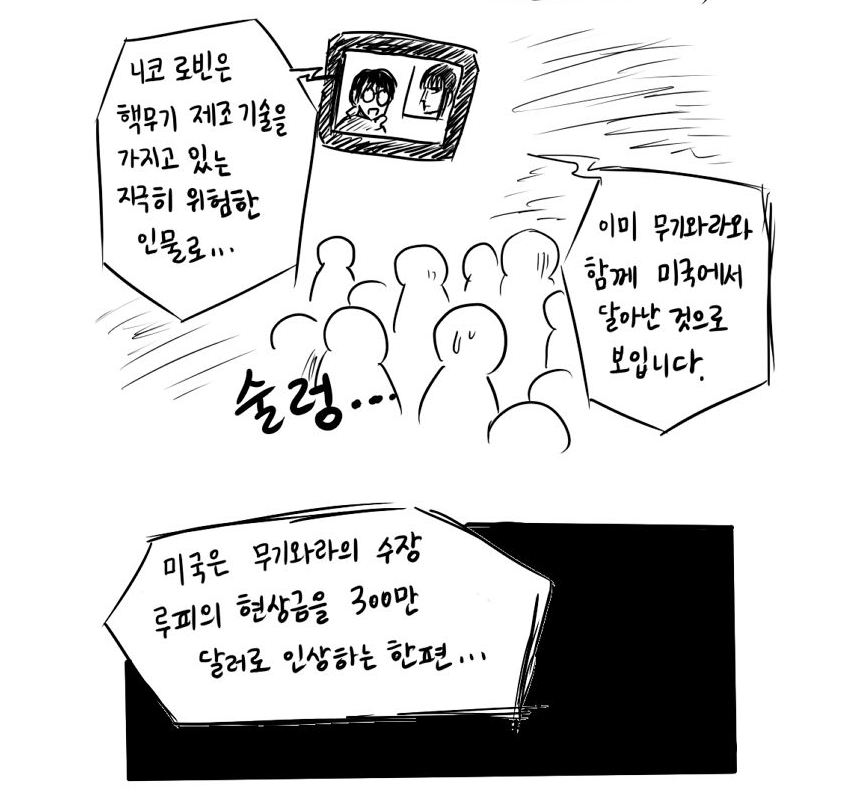 니코 로빈은
핵무기 제조기술을
가지고 있는
지극히 위험한
인물로...
이미 무기와라와
함께 미국에서
달아난 것으로
보입니다.
술렁...
미국은 무기와라의 수장
루피의 현상금을 300만
달러로 인상하는 한편...